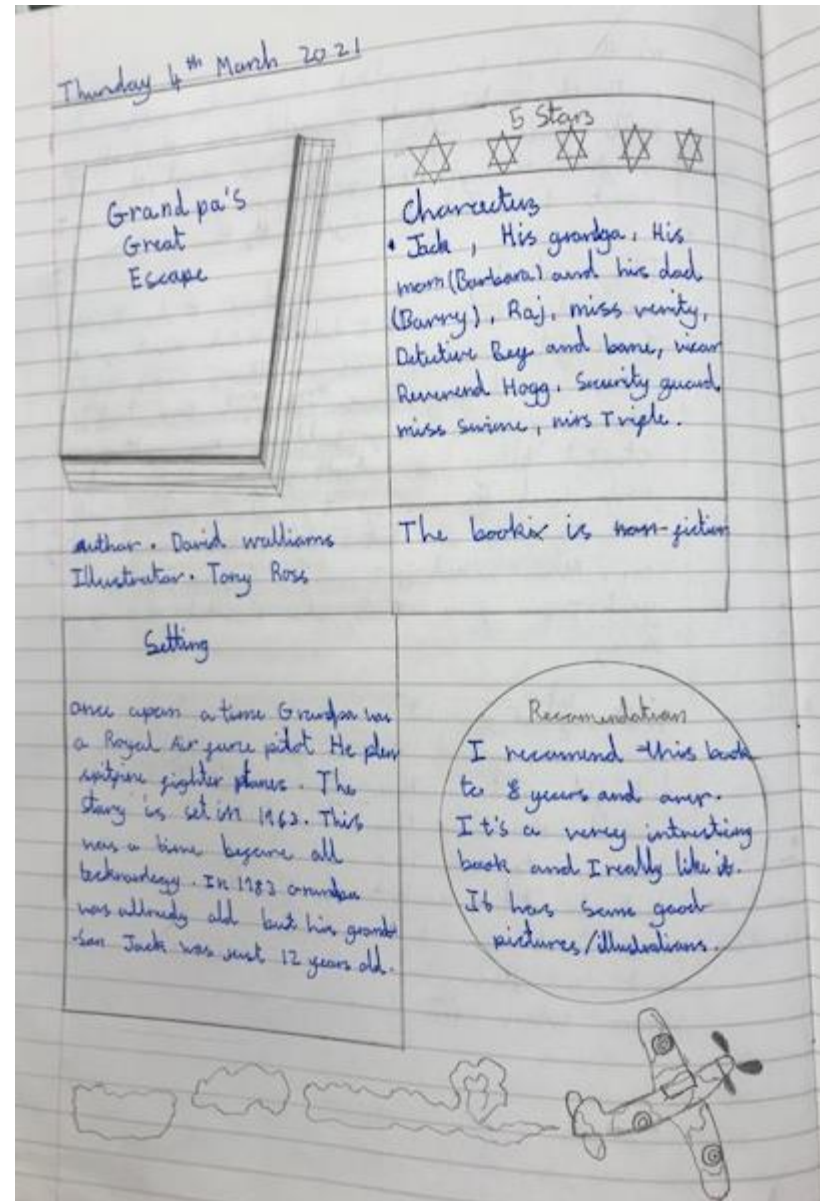 Thursday 4th March 2021
Grandpa's
Great
Escape
5 Stars
Characters
• Jack, His grandpa, His
mom (Barbara) and his dad
(Barry), Raj, miss verity,
Detective Beg and bone, vicar
Reverend Hogg, Security guard
miss Swine, mrs Triple.
author. David walliams
Illustrator. Tony Ross
The book is non-fiction
Setting
once upon a time Grandpa was
a Royal Air force pilot He plew
spitfire fighter planes. The
story is set in 1983. This
was a time before all
In 1983 Grandpa
was allready old but his grand
-son Jack was just 12 years old.
Recomendation
I recomend this book
to 8 years and over.
It's a verey intresting
book and I really like it.
It has some good
pictures/illustrations.